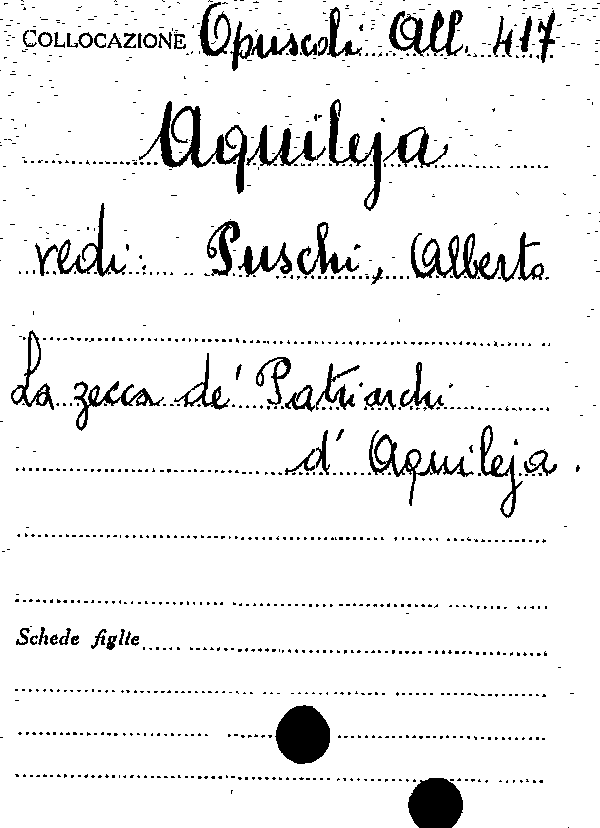 COLLOCAZIONE Opuscoli All. 417
Aquileja
vedi: Puschi, Alberto
La zecca de' Patriarchi
d' Aquileja.
Schede figlie